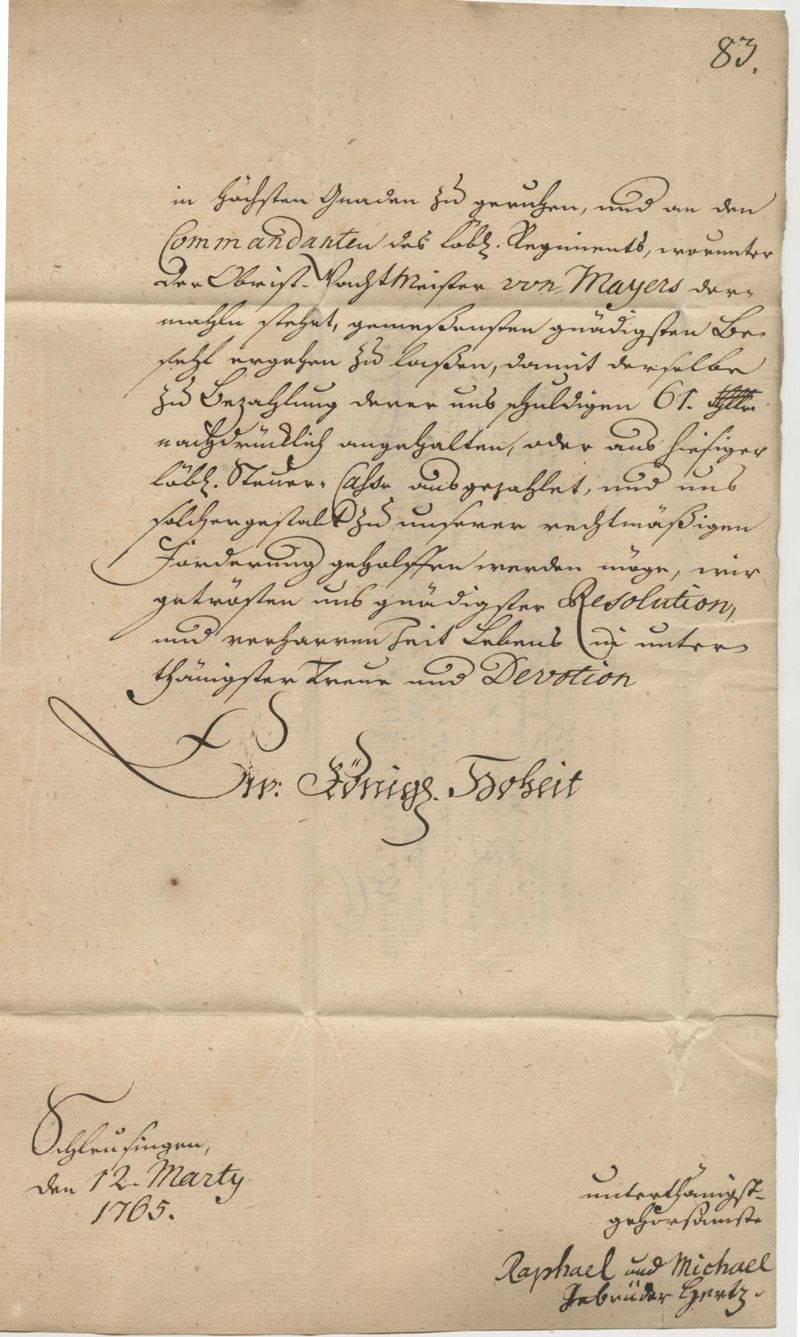 83.
in höchsten Gnaden zu geruhen, und an den
Commandanten des löbl. Regiments, worunter
der Obrist-Wachtmeister von Mayers der-
mahln stehet, gemeßensten gnädigsten Be-
fehl ergehen zu laßen, damit derselbe
zu Bezahlung derer uns schuldigen 61. thlr.
nachdrücklich angehalten, oder aus hiesiger
löbl. Steuer-Casse ausgezahlet, und uns
solchergestalt zu unserer rechtmäßigen
Forderung geholffen werden möge, wir
getrösten uns gnädigster Resolution,
und verharren Zeit Lebens in unter-
thänigster Treue und Devotion
Ew: Königl. Hoheit
Schleusingen,
den 12. Marty
1765.
unterthänigst-
gehorsamste
Raphael und Michael
Gebrüder Hertz.